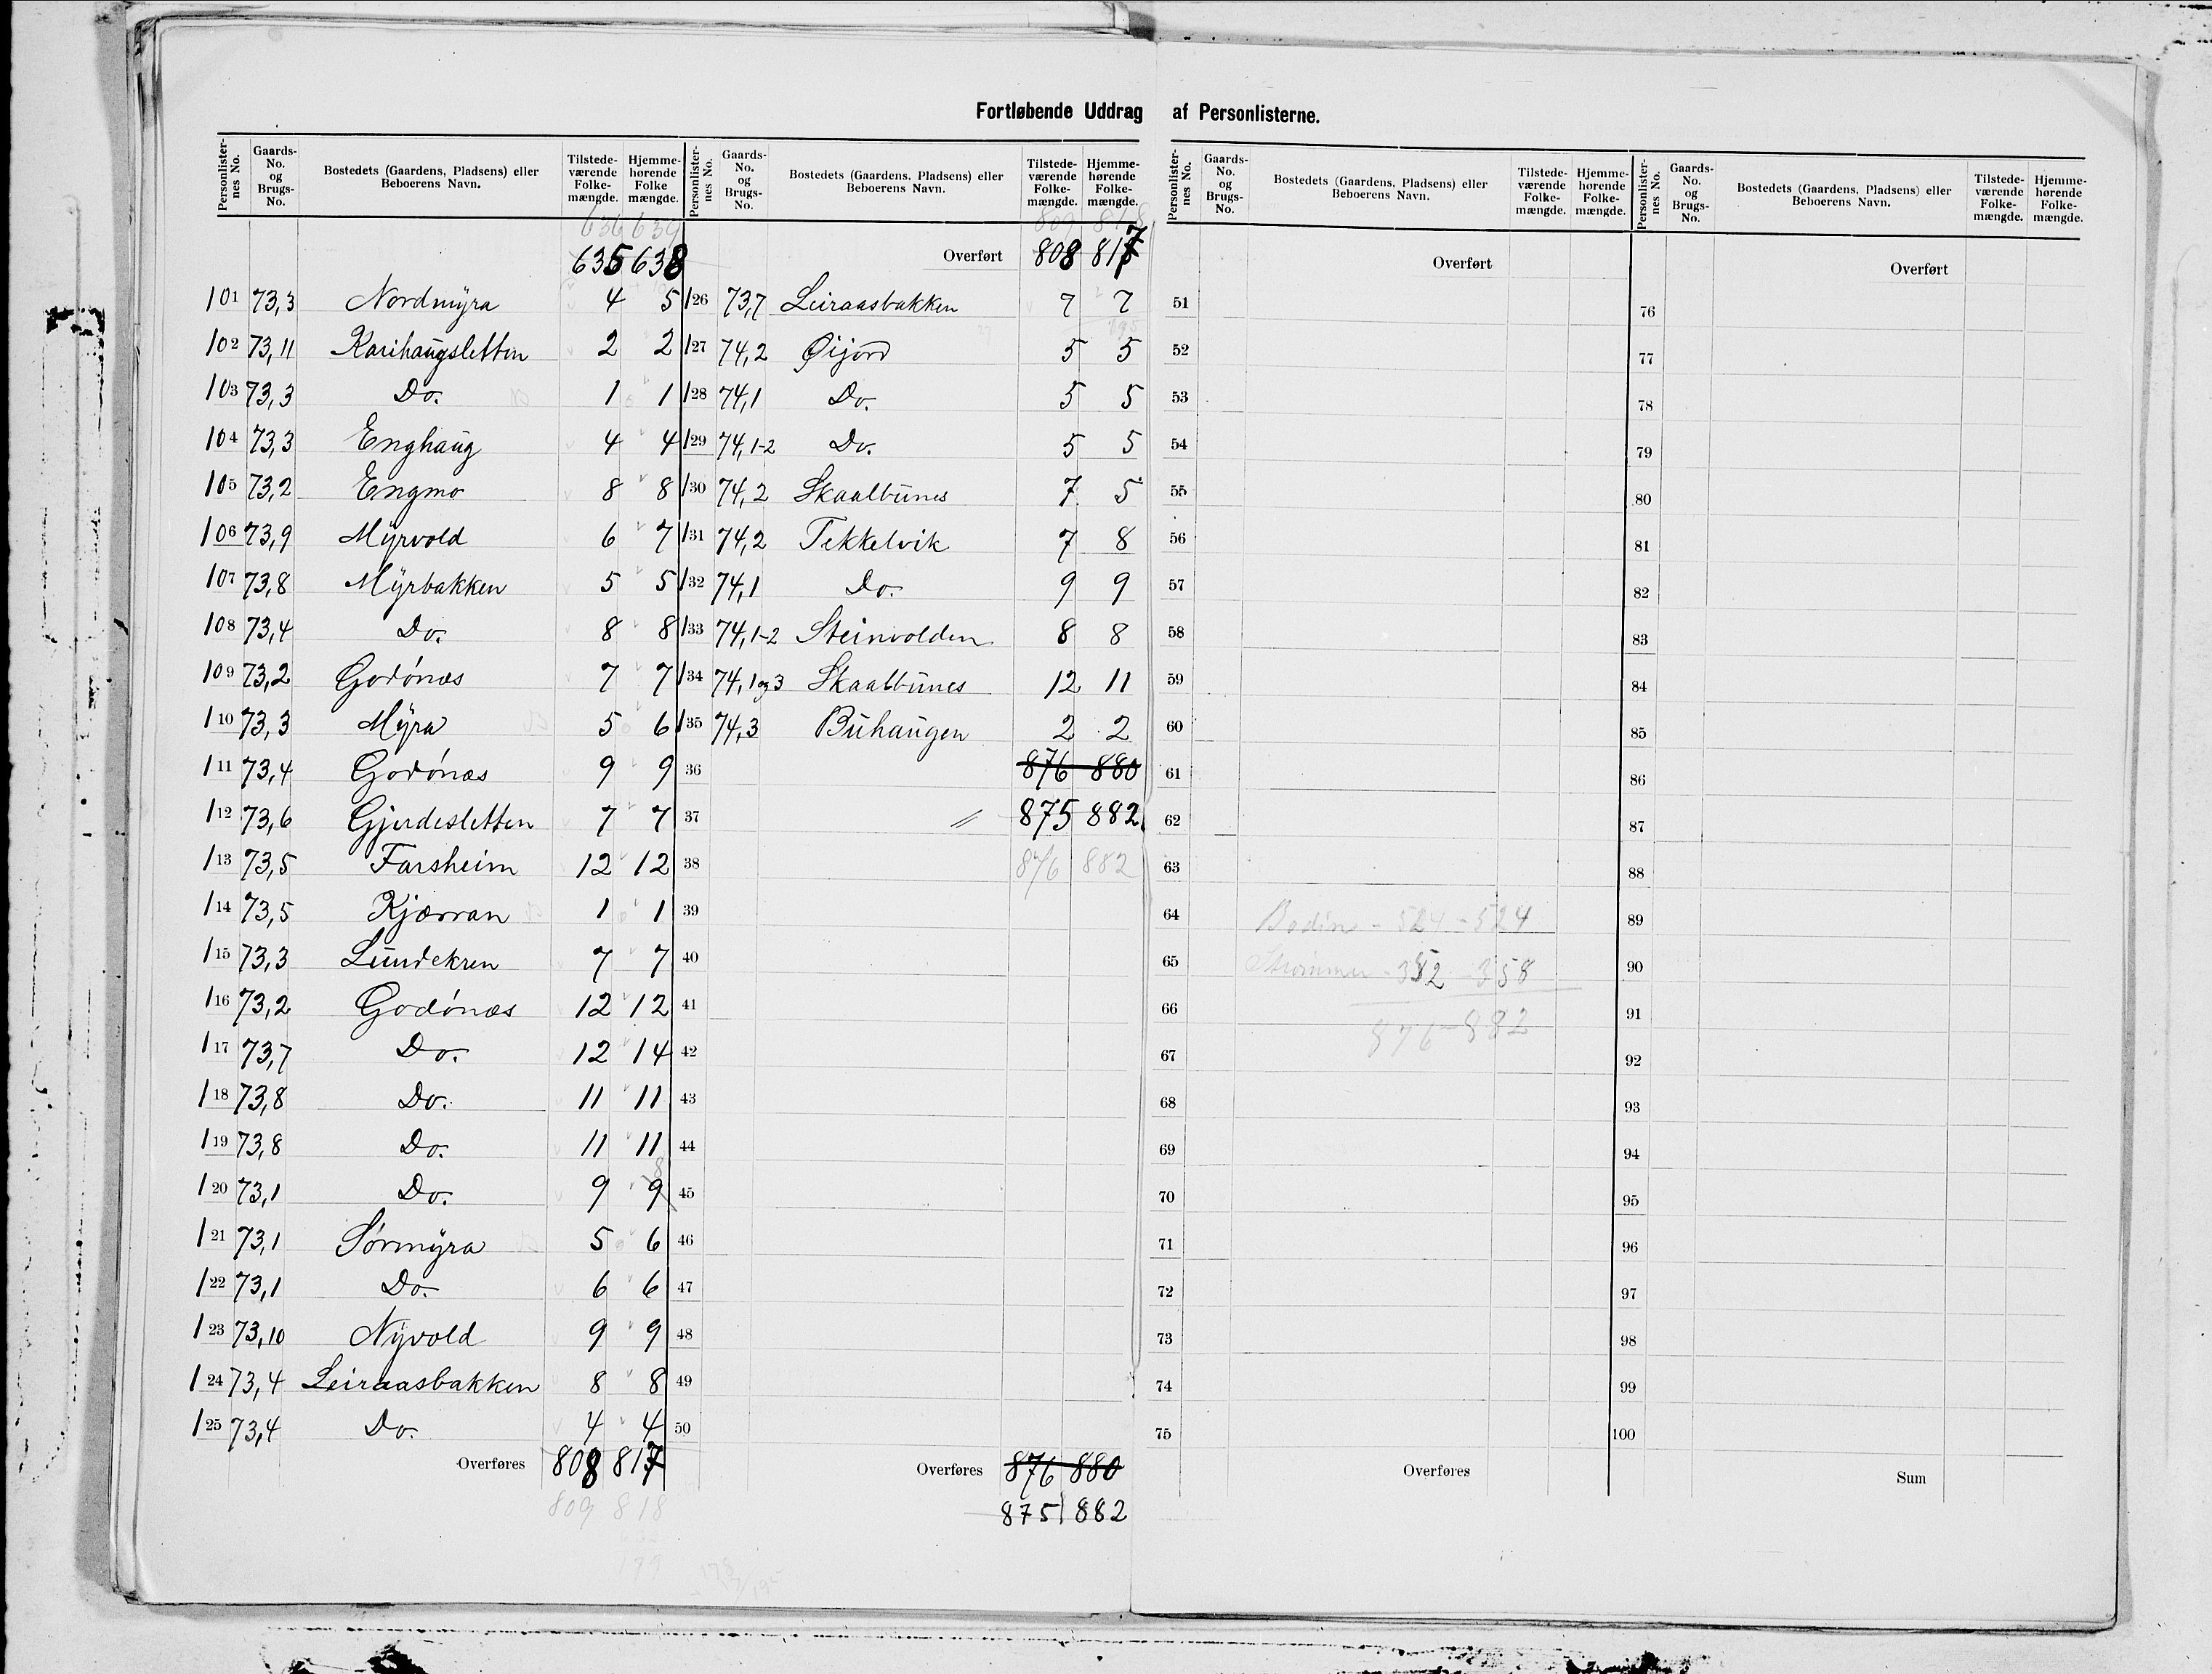 Fortløbende Uddrag af Personlisterne.
Personlister-nes No. Gaards-No. og Brugs-No. Bostedets (Gaardens, Pladsens) eller Beboerens Navn. Tilstede-værende Folke-mængde. Hjemme-hørende Folke mængde.
636 639
635 638
101 73,3 Nordmÿra 4 5
102 73,11 Karihaugsletten 2 2
103 73,3 Do. 1 1
104 73,3 Enghaug 4 4
105 73,2 Engmo 8 8
106 73,9 Mÿrvold 6 7
107 73,8 Mÿrbakken 5 5
108 73,4 Do. 8 8
109 73,2 Godónæs 7 7
110 73,3 Mÿra 5 6
111 73,4 Godónæs 9 9
112 73,6 Gjerdesletten 7 7
113 73,5 Farsheim 12 12
114 73,5 Kjærran 1 1
115 73,3 Lundekren 7 7
116 73,2 Godónæs 12 12
117 73,7 Do. 12 14
118 73,8 Do. 11 11
119 73,8 Do. 11 11
120 73,1 Do. 9 9 8
121 73,1 Sórmÿra 5 6
122 73,1 Do. 6 6
123 73,10 Nÿvold 9 9
124 73,4 Leiraasbakken 8 8
125 73,4 Do. 4 4
Overføres 808 817
809 818
179
Personlister-nes No. Gaards-No. og Brugs-No. Bostedets (Gaardens, Pladsens) eller Beboerens Navn. Tilstede-værende Folke-mængde. Hjemme-hørende Folke-mængde.
809 818
Overført 808 817
126 73,7 Leiraasbakken 7 7
127 74,2 Øijord 5 5
128 74,1 Do. 5 5
129 74,1-2 Do. 5 5
130 74,2 Skaalbunes 7 5
131 74,2 Tekkelvik 7 8
132 74,1 Do. 9 9
133 74,1-2 Steinvolden 8 8
134 74,1og3 Skaalbunes 12 11
135 74,3 Buhaugen 2 2
36 876 880
37 875 882
38 876 882
39
40
41
42
43
44
45
46
47
48
49
50
Overføres 876 880
875 882
Personlister-nes No. Gaards-No. og Brugs-No. Bostedets (Gaardens, Pladsens) eller Beboerens Navn. Tilstede-værende Folke-mængde. Hjemme-hørende Folke-mængde.
Overført
51
52
53
54
55
56
57
58
59
60
61
62
63
64 Bodin - 524 - 524
65 Strømmen - 352 - 358
66 876 - 882
67
68
69
70
71
72
73
74
75
Overføres
Personlister-nes No. Gaards-No. og Brugs-No. Bostedets (Gaardens, Pladsens) eller Beboerens Navn. Tilstede-værende Folke-mængde. Hjemme-hørende Folke-mængde.
Overført
76
77
78
79
80
81
82
83
84
85
86
87
88
89
90
91
92
93
94
95
96
97
98
99
100
Sum